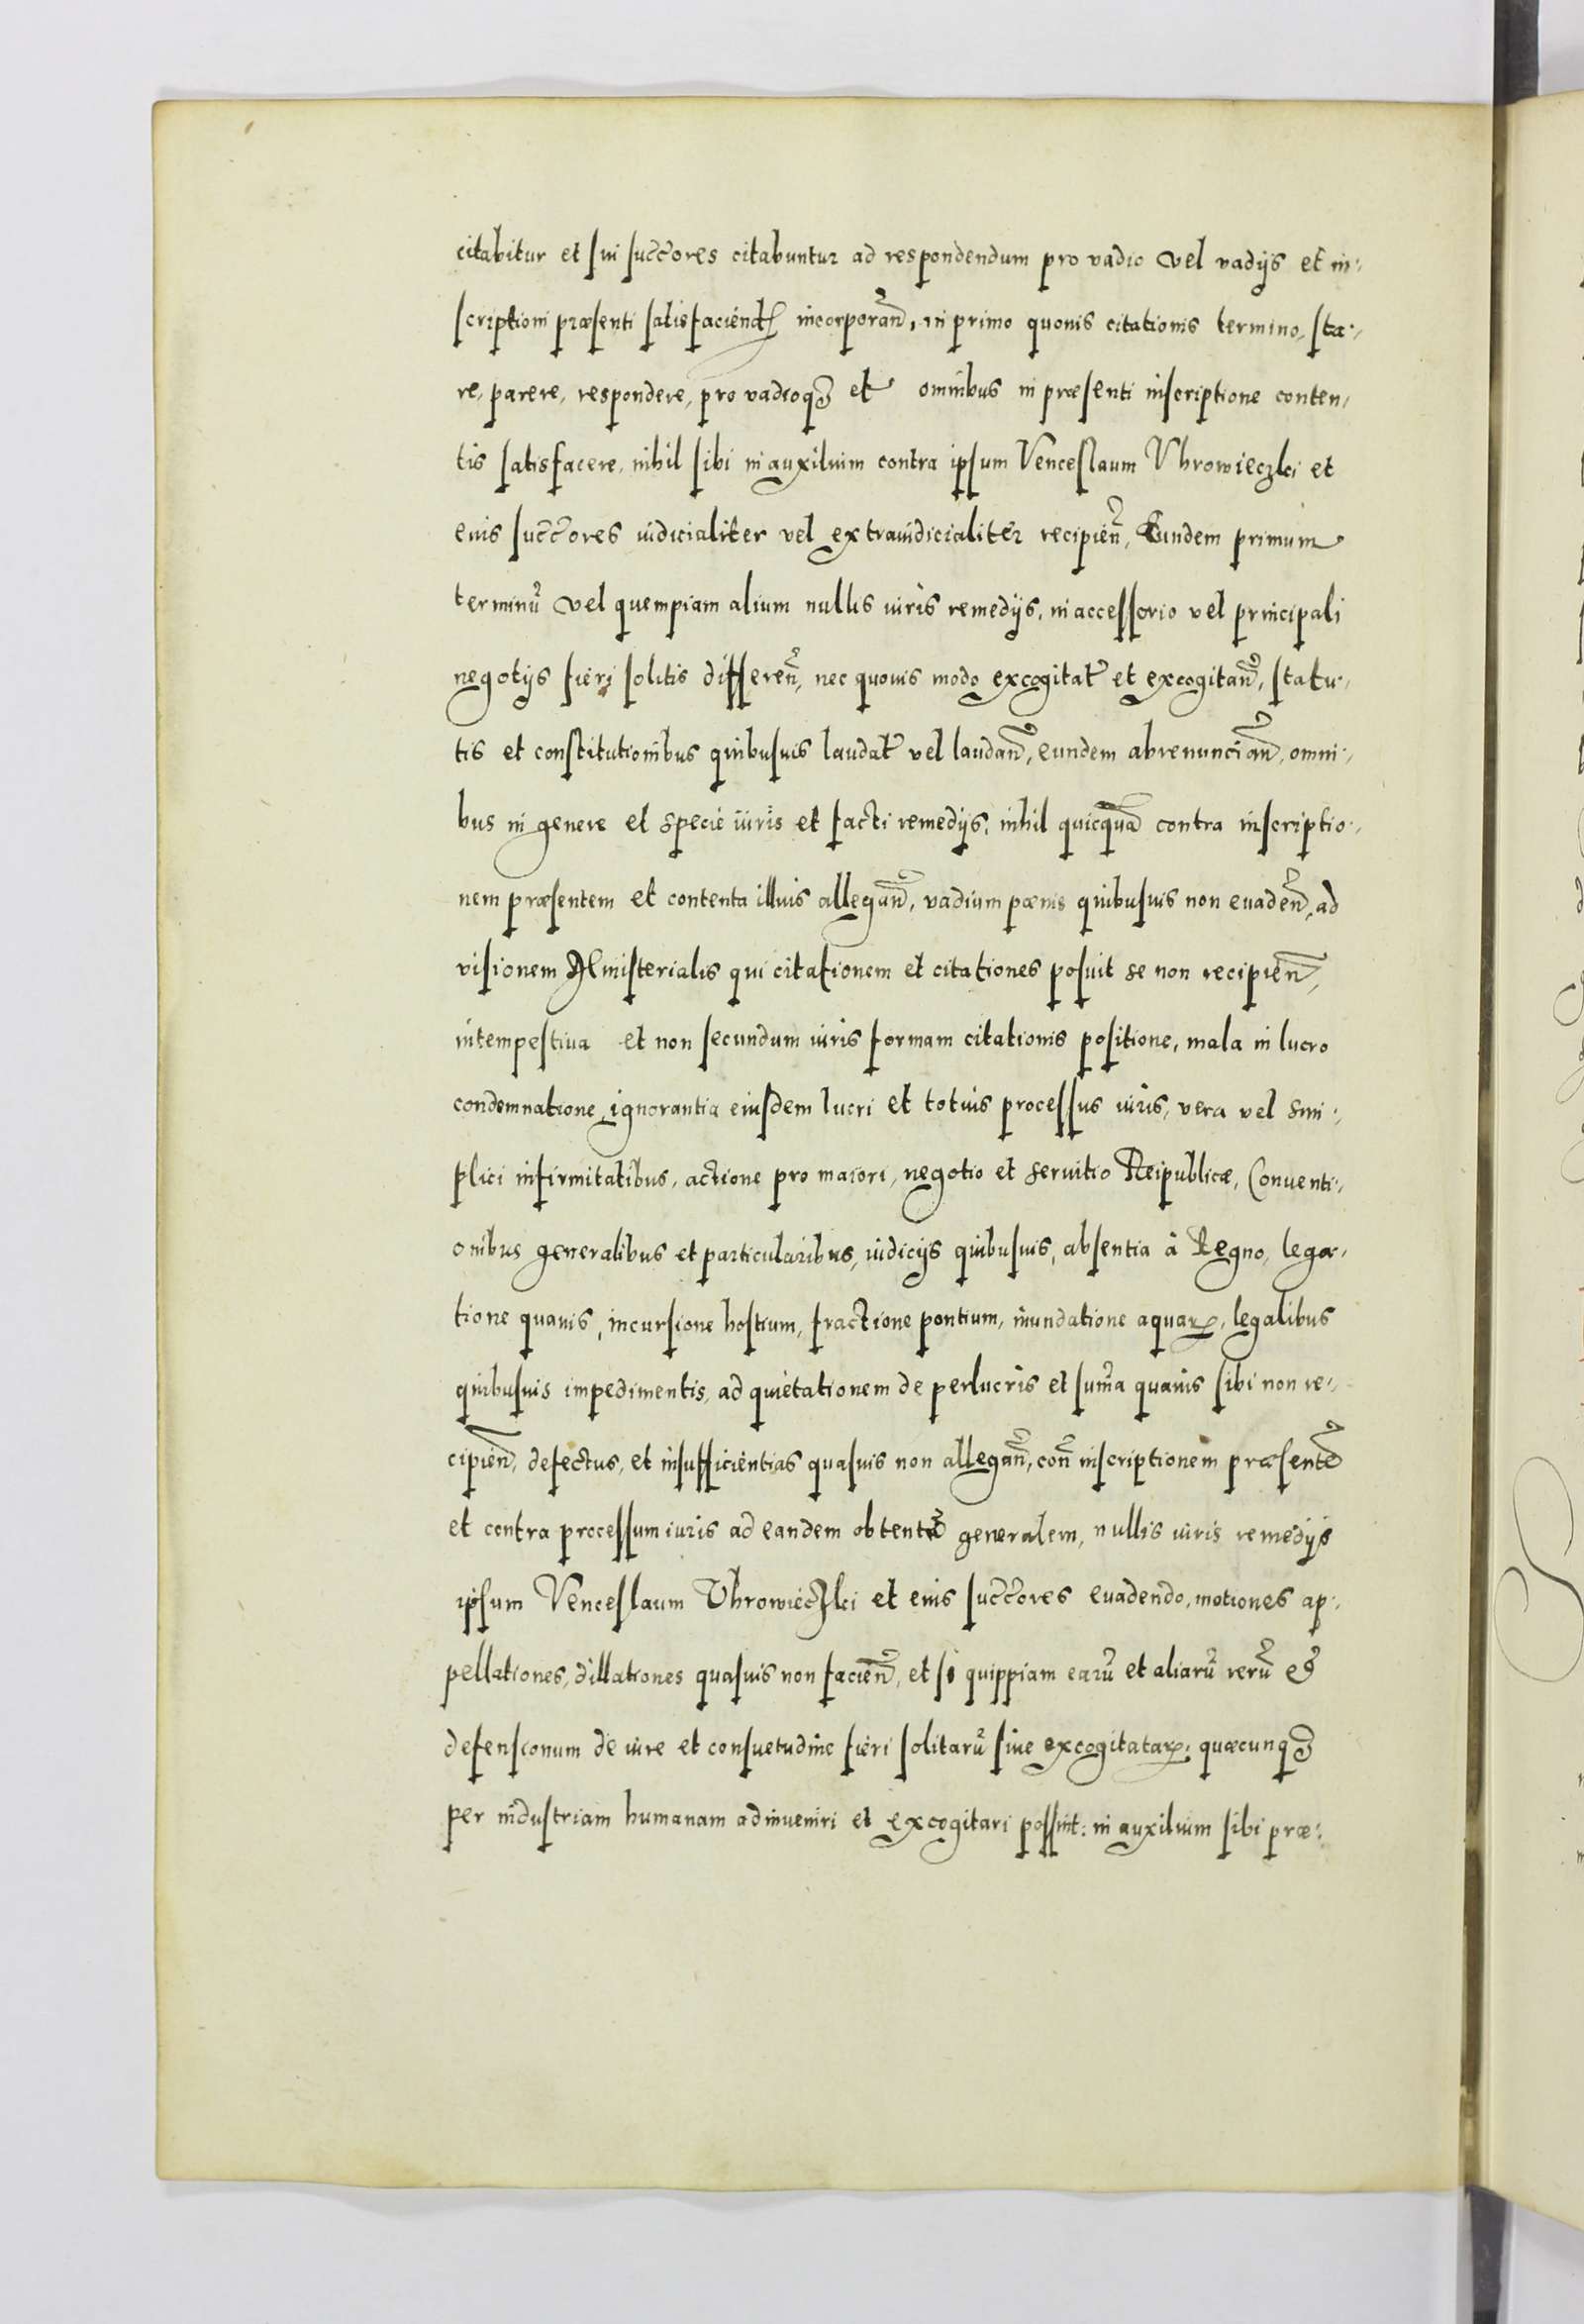 citabitur et sui succ̃ores citabuntur ad respondendum pro vadio vel vadijs et in:
scriptioni præsenti satisfaciend̃ incorporañ, in primo quouis citationis termino, sta:
re, parere, respondere, pro vadioq₃ et omnibus in præsenti inscriptione conten,
tis satisfacere, nihil sibi in auxilium contra ipsum Venceslaum Vhrowieczki et
eius succ̃ores iudicialiter vel extraiudicialiter recipieñ, Eundem primum
terminũ vel quempiam alium nullis iuris remedijs, in accessorio vel principali
negotijs fieri solitis differeñ, nec quouis modo excogitat̃ et excogitañ, statu,
tis et constitutionibus quibusuis laudat̃ vel laudañ, eundem abrenunciañ, omni:
bus in genere et specie iuris et facti remedijs, nihil quicquã contra inscriptio:
nem præsentem et contenta illius allegañ, vadium pœnis quibusuis non euadeñ, ad
visionem Ministerialis qui citationem et citationes posuit se non recipieñ,
intempestiua et non secundum iuris formam citationis positione, mala in lucro
condemnatione, ignorantia eiusdem lucri et totius processus iuris, vera vel sim:
plici infirmitatibus, actione pro maiori, negotio et seruitio Reipublicæ, Conuenti:
onibus generalibus et particularibus, iudicijs quibusuis, absentia à Regno, lega,
tione quauis, incursione hostium, fractione pontium, inundatione aquaꝝ, legalibus
quibusuis impedimentis, ad quietationem de perlucris et sum̃a quauis sibi non re,
cipieñ, defectus, et insufficientias quasuis non allegañ, coñ inscriptionem præsentẽ
et contra processum iuris ad eandem obtentã generalem, nullis iuris remedijs
ipsum Venceslaum Vhrowieczki et eius succ̃ores euadendo, motiones ap:
pellationes, dillationes quasuis non facieñ, et si quippiam earũ et aliarũ rerũ &
defensionum de iure et consuetudine fieri solitarũ siue excogitataꝝ, quæcunq₃
per industriam humanam adinueniri et excogitari possint: in auxilium sibi præ: